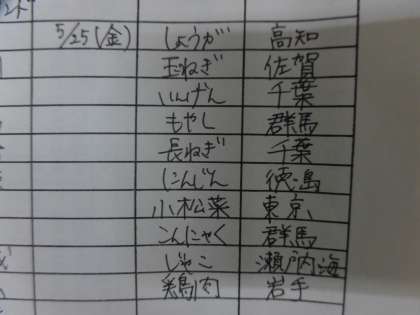 5/25(金) しょうが 高知
玉ねぎ 佐賀
いんげん 千葉
もやし 群馬
長ねぎ 千葉
にんじん 徳島
小松菜 東京
こんにゃく 群馬
じゃこ 瀬戸内海
鶏肉 岩手